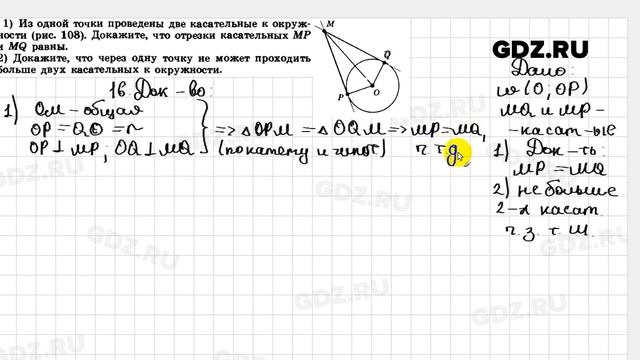 1) Из одной точки проведены две касательные к окруж-
ности (рис. 108). Докажите, что отрезки касательных MP
и MQ равны.
2) Докажите, что через одну точку не может проходить
больше двух касательных к окружности.
M
Q
P
O
GDZ.RU
16. Док-во:
1) OM – общая
OP = QO = r
OP ⊥ MP; OQ ⊥ MQ
=> △OPM = △OQM => MP = MQ,
(по катету и гипот) ч.т.д.
Дано:
ω(O; OP)
MQ и MP –
– касат-ые
1) Док-ть:
MP = MQ
2) не больше
2-х касат.
ч.з. т. М.